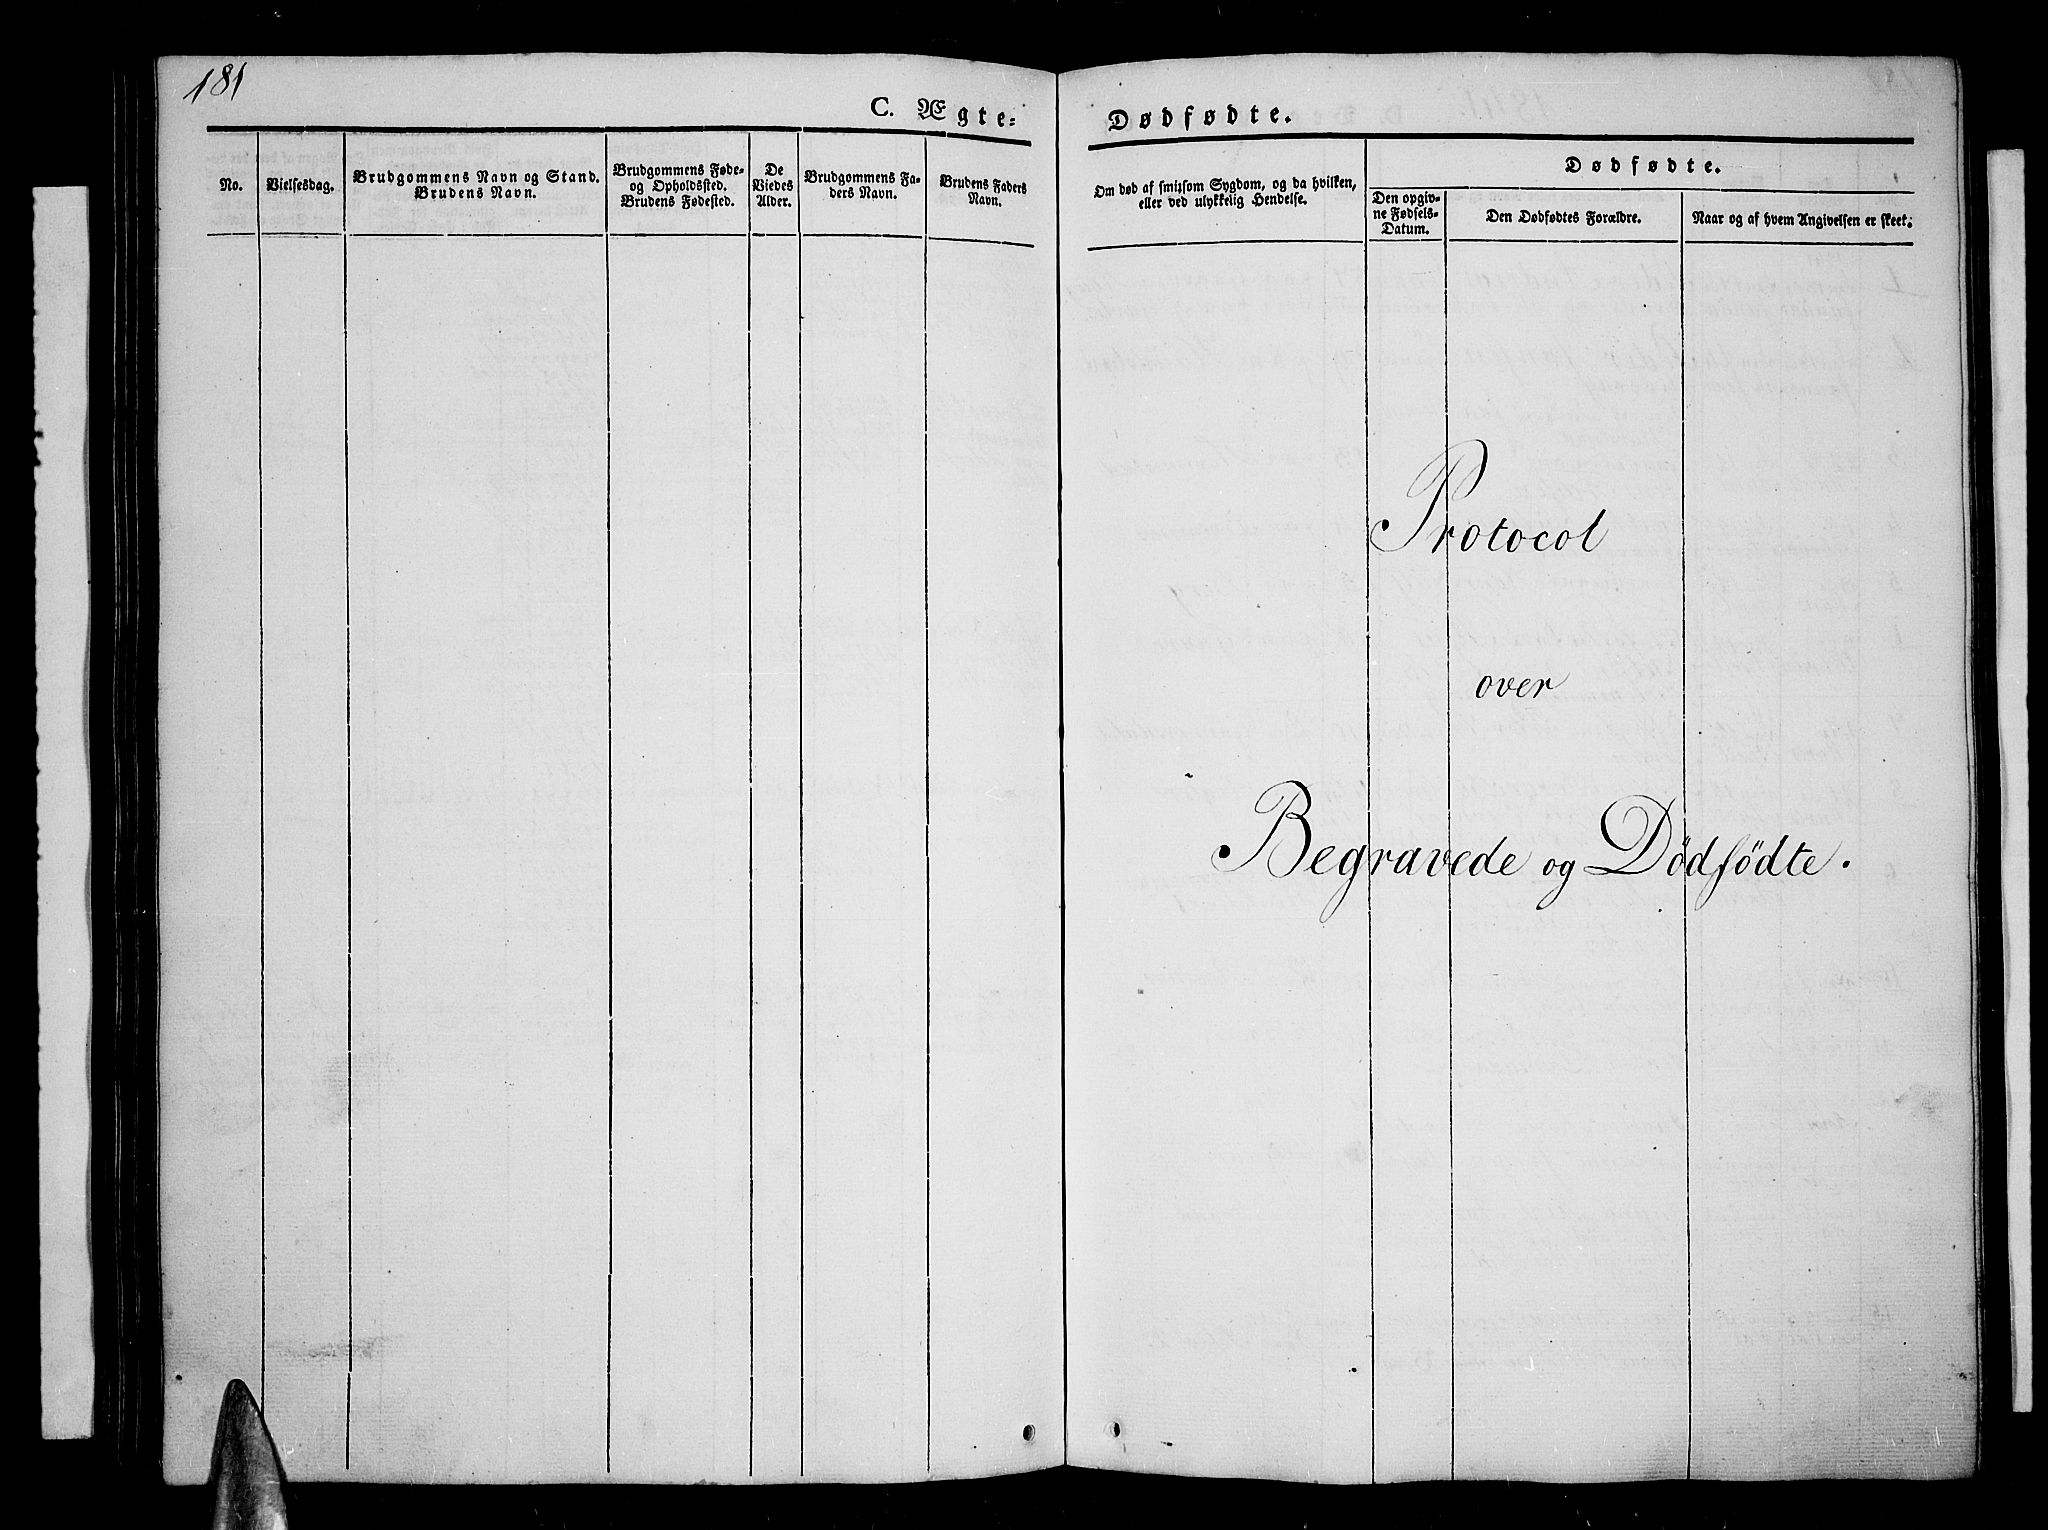 181
C. Ægte=
No.
Vielsesdag.
Brudgommens Navn og Stand.
Brudens Navn.
Brudgommens Føde-
og Opholdssted.
Brudens Fødested.
De
Viedes
Alder.
Brudgommens Fa-
ders Navn.
Brudens Faders
Navn.
Dødfødte.
Om død af smitsom Sygdom, og da hvilken,
eller ved ulykkelig Hendelse.
Dødfødte.
Den opgiv-
ne Fødsels-
Datum.
Den Dødfødtes Forældre.
Naar og af hvem Angivelsen er skeet.
Protocol
over
Begravede og Dødfødte.